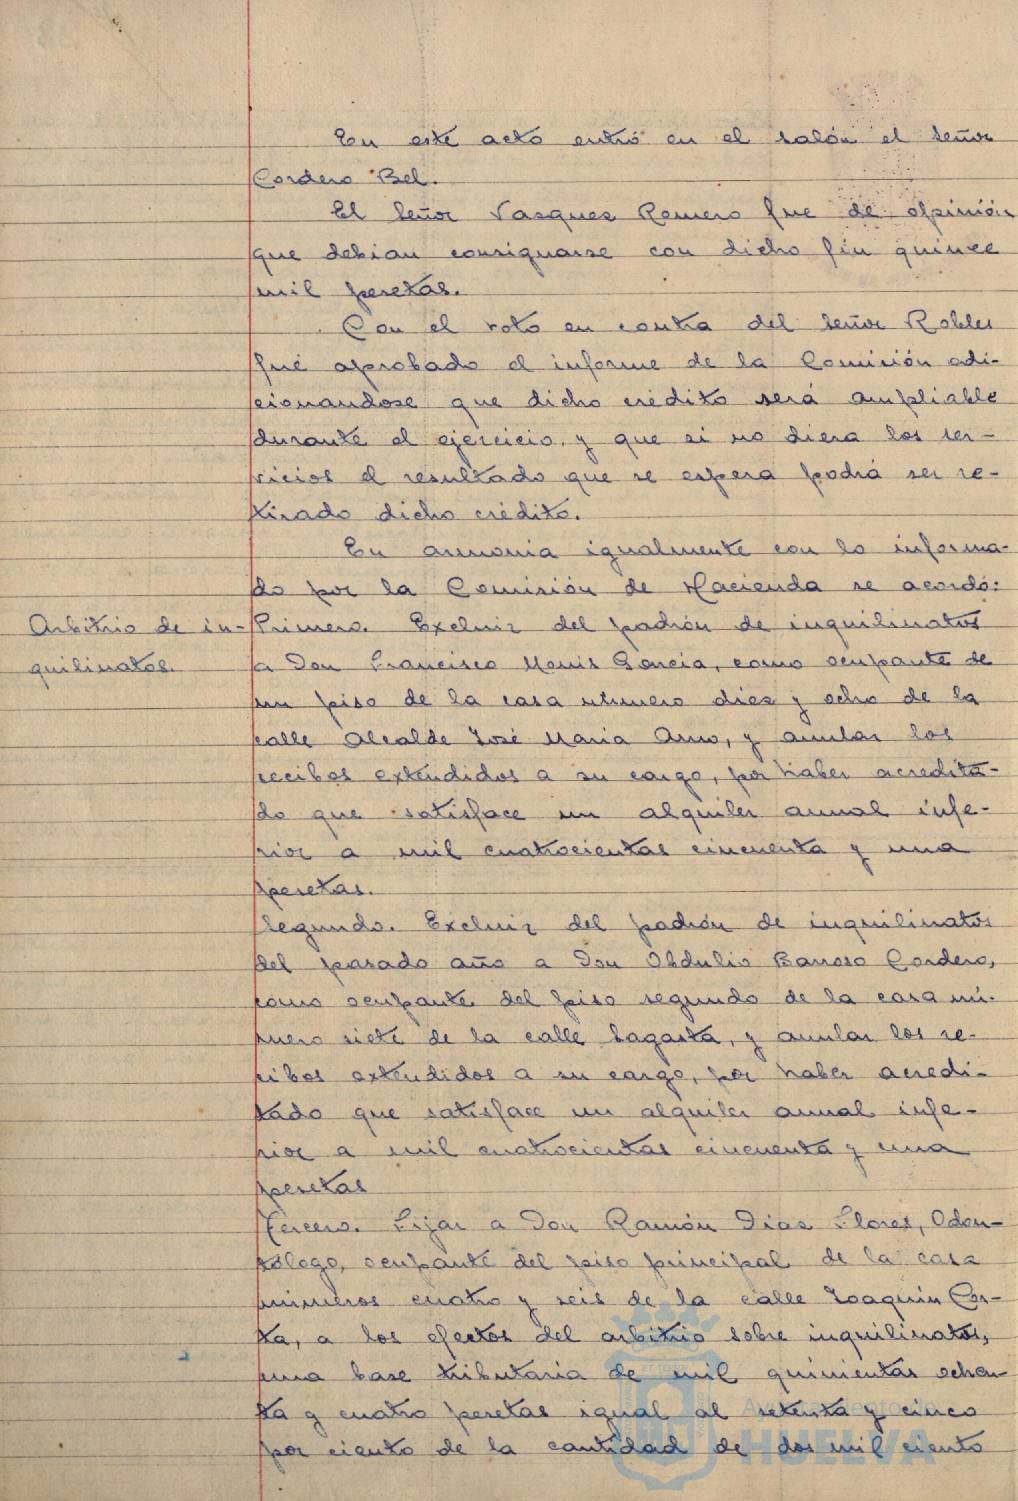 En este acto entró en el salón el señor
Cordero Bel.
El Señor Vasquez Romero fue de opinión
que debian consignarse con dicho fin quince
mil pesetas.
Con el voto en contra del Señor Robles
fué aprobado el informe de la Comisión adi-
cionandose que dicho crédito será ampliable
durante el ejercicio, y que si no diera los ser-
vicios el resultado que se espera podrá ser re-
tirado dicho crédito.
En armonia igualmente con lo informa-
do por la Comisión de Hacienda se acordó:
Arbitrio de in-
quilinatos.
Primero. Excluir del padrón de inquilinatos
a Don Francisco Monis Garcia, como ocupante de
un piso de la casa número diez y ocho de la
calle Alcalde José Maria Amo, y anular los
recibos extendidos a su cargo, por haber acredita-
do que satisface un alquiler anual infe-
rior a mil cuatrocientas cincuenta y una
pesetas.
Segundo. Excluir del padrón de inquilinatos
del pasado año a Don Obdulio Barroso Cordero,
como ocupante del piso segundo de la casa nú-
mero siete de la calle Sagasta, y anular los re-
cibos extendidos a su cargo, por haber acredi-
tado que satisface un alquiler anual infe-
rior a mil cuatrocientas cincuenta y una
pesetas
Tercero. Fijar a Don Ramón Dias Flores, Odon-
tólogo, ocupante del piso principal de la casa
números cuatro y seis de la calle Joaquin Cos-
ta, a los efectos del arbitrio sobre inquilinatos,
una base tributaria de mil quinientas ochen-
ta y cuatro pesetas igual al setenta y cinco
por ciento de la cantidad de dos mil ciento
Ayuntamiento de
HUELVA